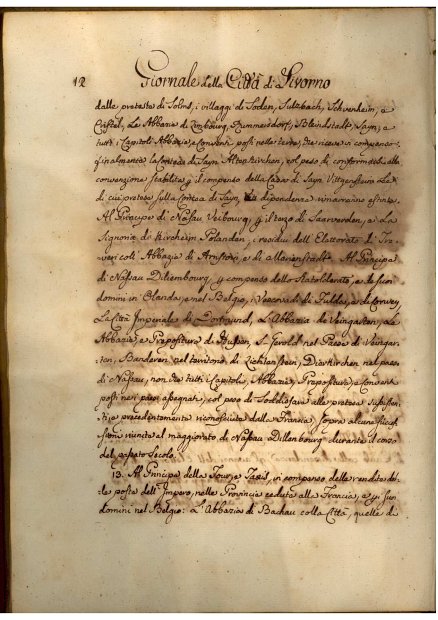 12 Giornale della Città di Livorno
dalle proteste di Solms, i villaggi di Soden, Sulzbach, Schvenheim, a
Castel, Le Abbazie di Limbourg, Rummersdorf, Bleindstadt, Sayn, e
tutti i Capitoli Abbazie e Conventi posti nelle terre, che riceve in compenso
finalmente la Contea di Sayn Altenkirchen, col peso di conformarsi alla
convenzione stabilita p il compenso della Casa di Sayn Vittgenstein La
di cui pretese sulla Contea di Sayn, e a dipendenze rimarranno estinte.
Al Principe di Nassau Veilbourg, p il terzo di Saarverden, e La
Signoria di Kircheim Polanden, i residui dell' Elettorato di Tre
veri coll' Abbazia di Arnstein e di Marienstadt. Al Principe
di Nassau Dillembourg, p compenso dello Statolderato, e de suoi
domini in Olanda, e nel Belgio, i Vescovadi di Fulda, e di Corvey
La Città Imperiale di Dortmund, L'Abbazia di Veingarten, Le
Abbazie, e Prepositure di Hoffen, S. Gerold nel Paese di Veingar-
ten, Banderen nel territorio di Lichtenstein, Dierkirchen nel paese
di Nassau, non che tutti i Capitoli, Abbazie, Prepositure, e Conventi
posti nei paesi assegnati, col peso di Soddisfare alle pretese sussisten-
ti (e precedentemente riconosciute dalla Francia) sopra alcune succes-
sioni riunite al maggiorato di Nassau Dillenbourg durante il corso
del passato secolo.
13. Al Principe della Tour, e Taxis, in compenso delle rendite del-
le poste dell' Impero, nelle Provincie cedute alla Francia, e p i suoi
domini nel Belgio: L'Abbazia di Buchau colla Città, quelle di